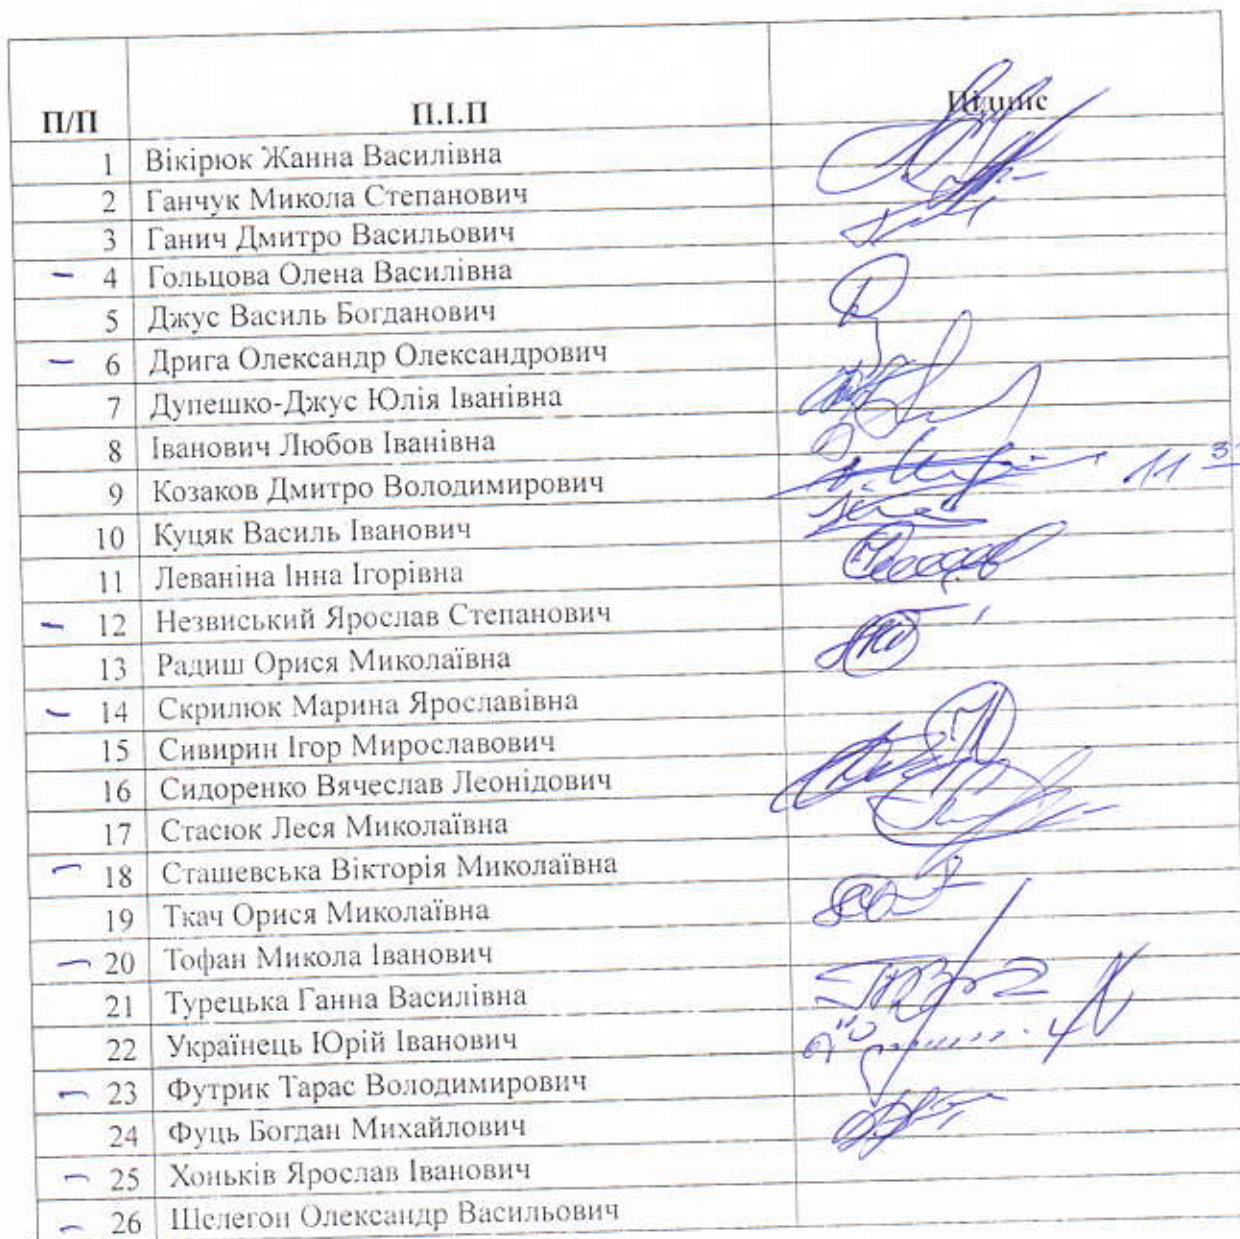 П/П П.І.П Підпис
1 Вікірюк Жанна Василівна
2 Ганчук Микола Степанович
3 Ганич Дмитро Васильович
– 4 Гольцова Олена Василівна
5 Джус Василь Богданович
– 6 Дрига Олександр Олександрович
7 Дупешко-Джус Юлія Іванівна
8 Іванович Любов Іванівна
9 Козаков Дмитро Володимирович 11
10 Куцяк Василь Іванович
11 Леваніна Інна Ігорівна
– 12 Незвиський Ярослав Степанович
13 Радиш Орися Миколаївна
– 14 Скрилюк Марина Ярославівна
15 Сивирин Ігор Мирославович
16 Сидоренко Вячеслав Леонідович
17 Стасюк Леся Миколаївна
– 18 Сташевська Вікторія Миколаївна
19 Ткач Орися Миколаївна
– 20 Тофан Микола Іванович
21 Турецька Ганна Василівна
22 Українець Юрій Іванович
– 23 Футрик Тарас Володимирович
24 Фуць Богдан Михайлович
– 25 Хоньків Ярослав Іванович
– 26 Шелегон Олександр Васильович